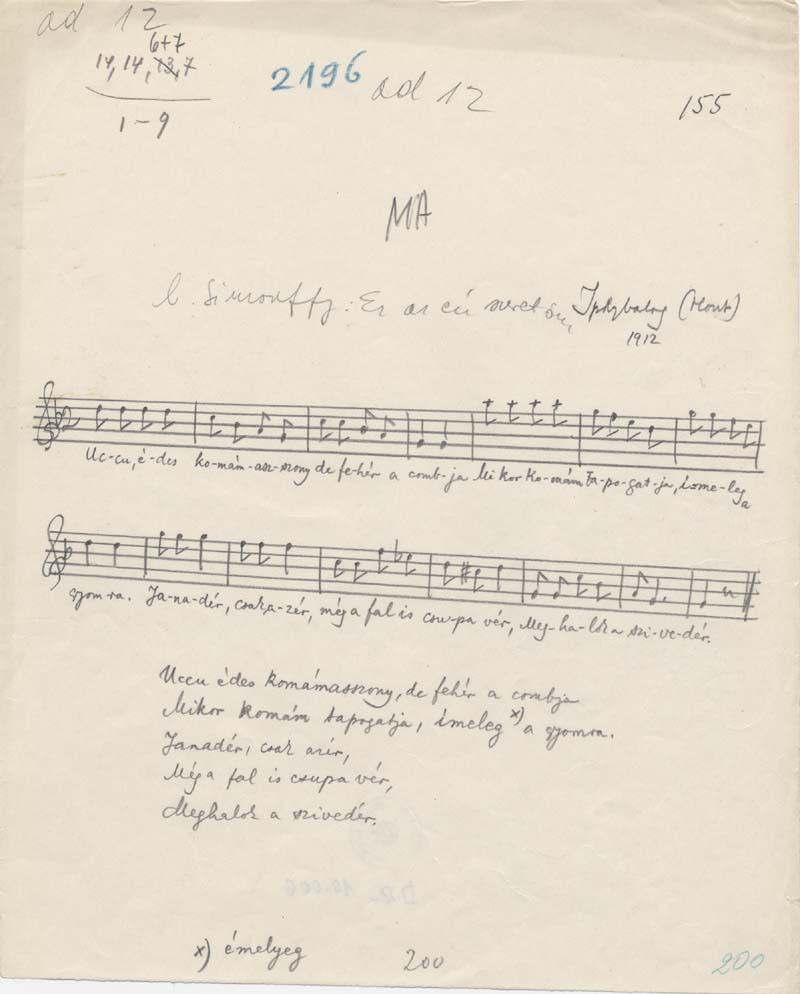 ad 12
6+7
14, 14, 13, 7
1-9
2196
ad 12
155
MA
Simonffy: Ez az én szeretőm,
Ipolybalog (Hont)
1912
Uc-cu, é-des ko-mám-asz-szony de fe-hér a comb-ja Mi kor ko-mám ta-po-gat-ja, íme-leg a
gyom-ra. Ja-na-dér, csak a-zér, még a fal is csu-pa vér, Meg-ha-lok a szi-ve-dér.
Uccu édes komámasszony, de fehér a combja
Mikor komám tapogatja, ímeleg x) a gyomra.
Janadér, csak azér,
Még a fal is csupa vér,
Meghalok a szivedér.
x) émelyeg
200
200